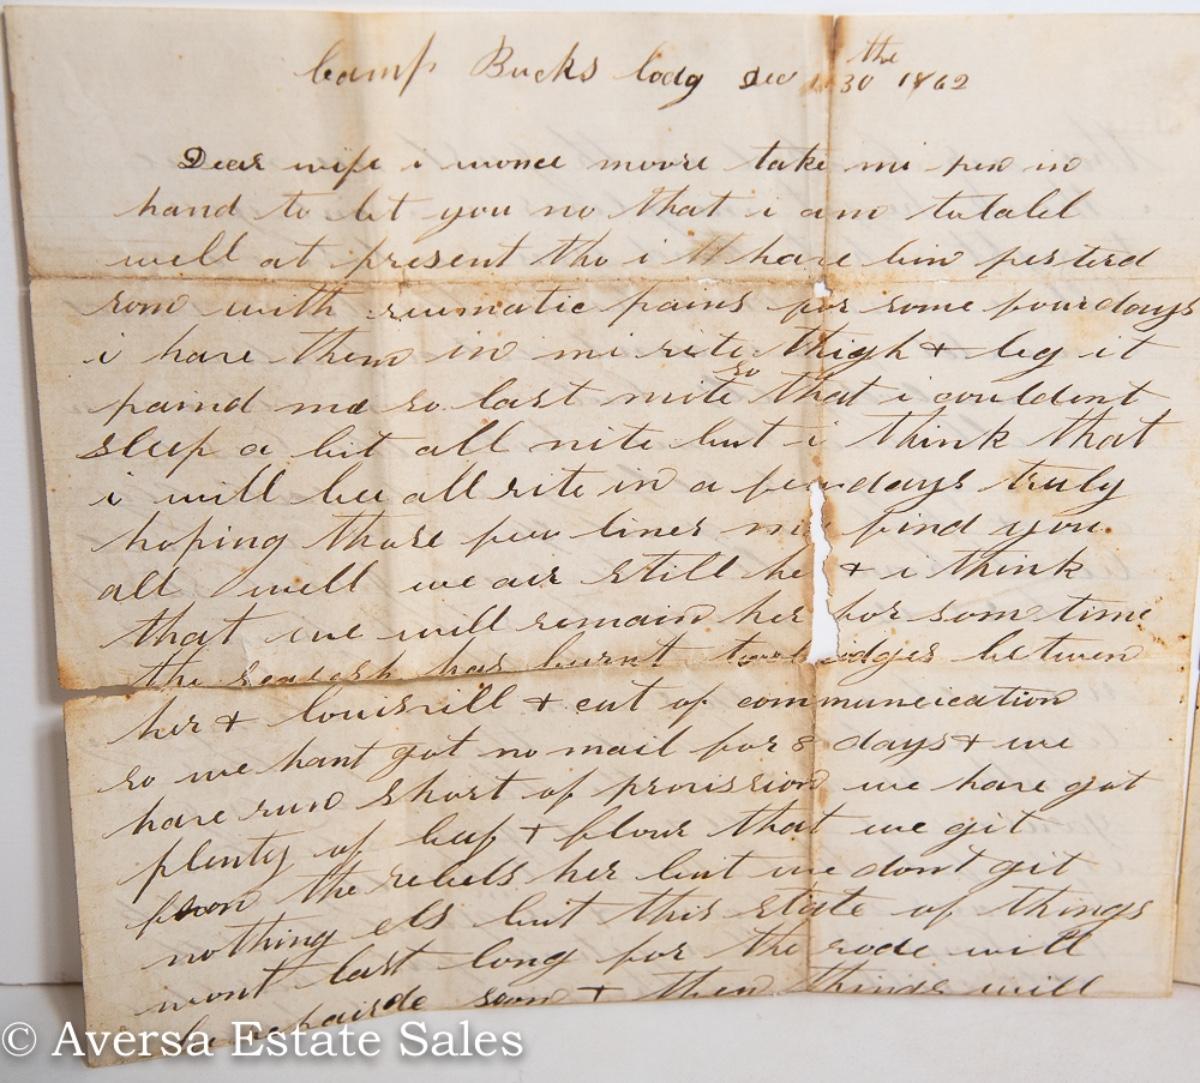 Camp Bucks lodg Dec 30 the 1862
Dear wife i wonce moore take mi pen in
hand to let you no that i am tolabl
well at present tho i have bin pesterd
som with rumatic pains for some fourdays
i have them in mi rite thigh & leg it
paind me so last nite so that i couldent
sleep a bit all nite but i think that
i will bee all rite in a few days truly
hoping those few lines find you
all well we air still & i think
that we will remain her for som time
the has burnt between
her & louisvill & cut of communeication
so we hant got no mail for 8 days & we
have run short of provission we have got
plenty of beef & flour that we git
from the rebels her but we dont git
nothing els but this state of things
wont last long for the rode will
be repairde soon & then things will
© Aversa Estate Sales